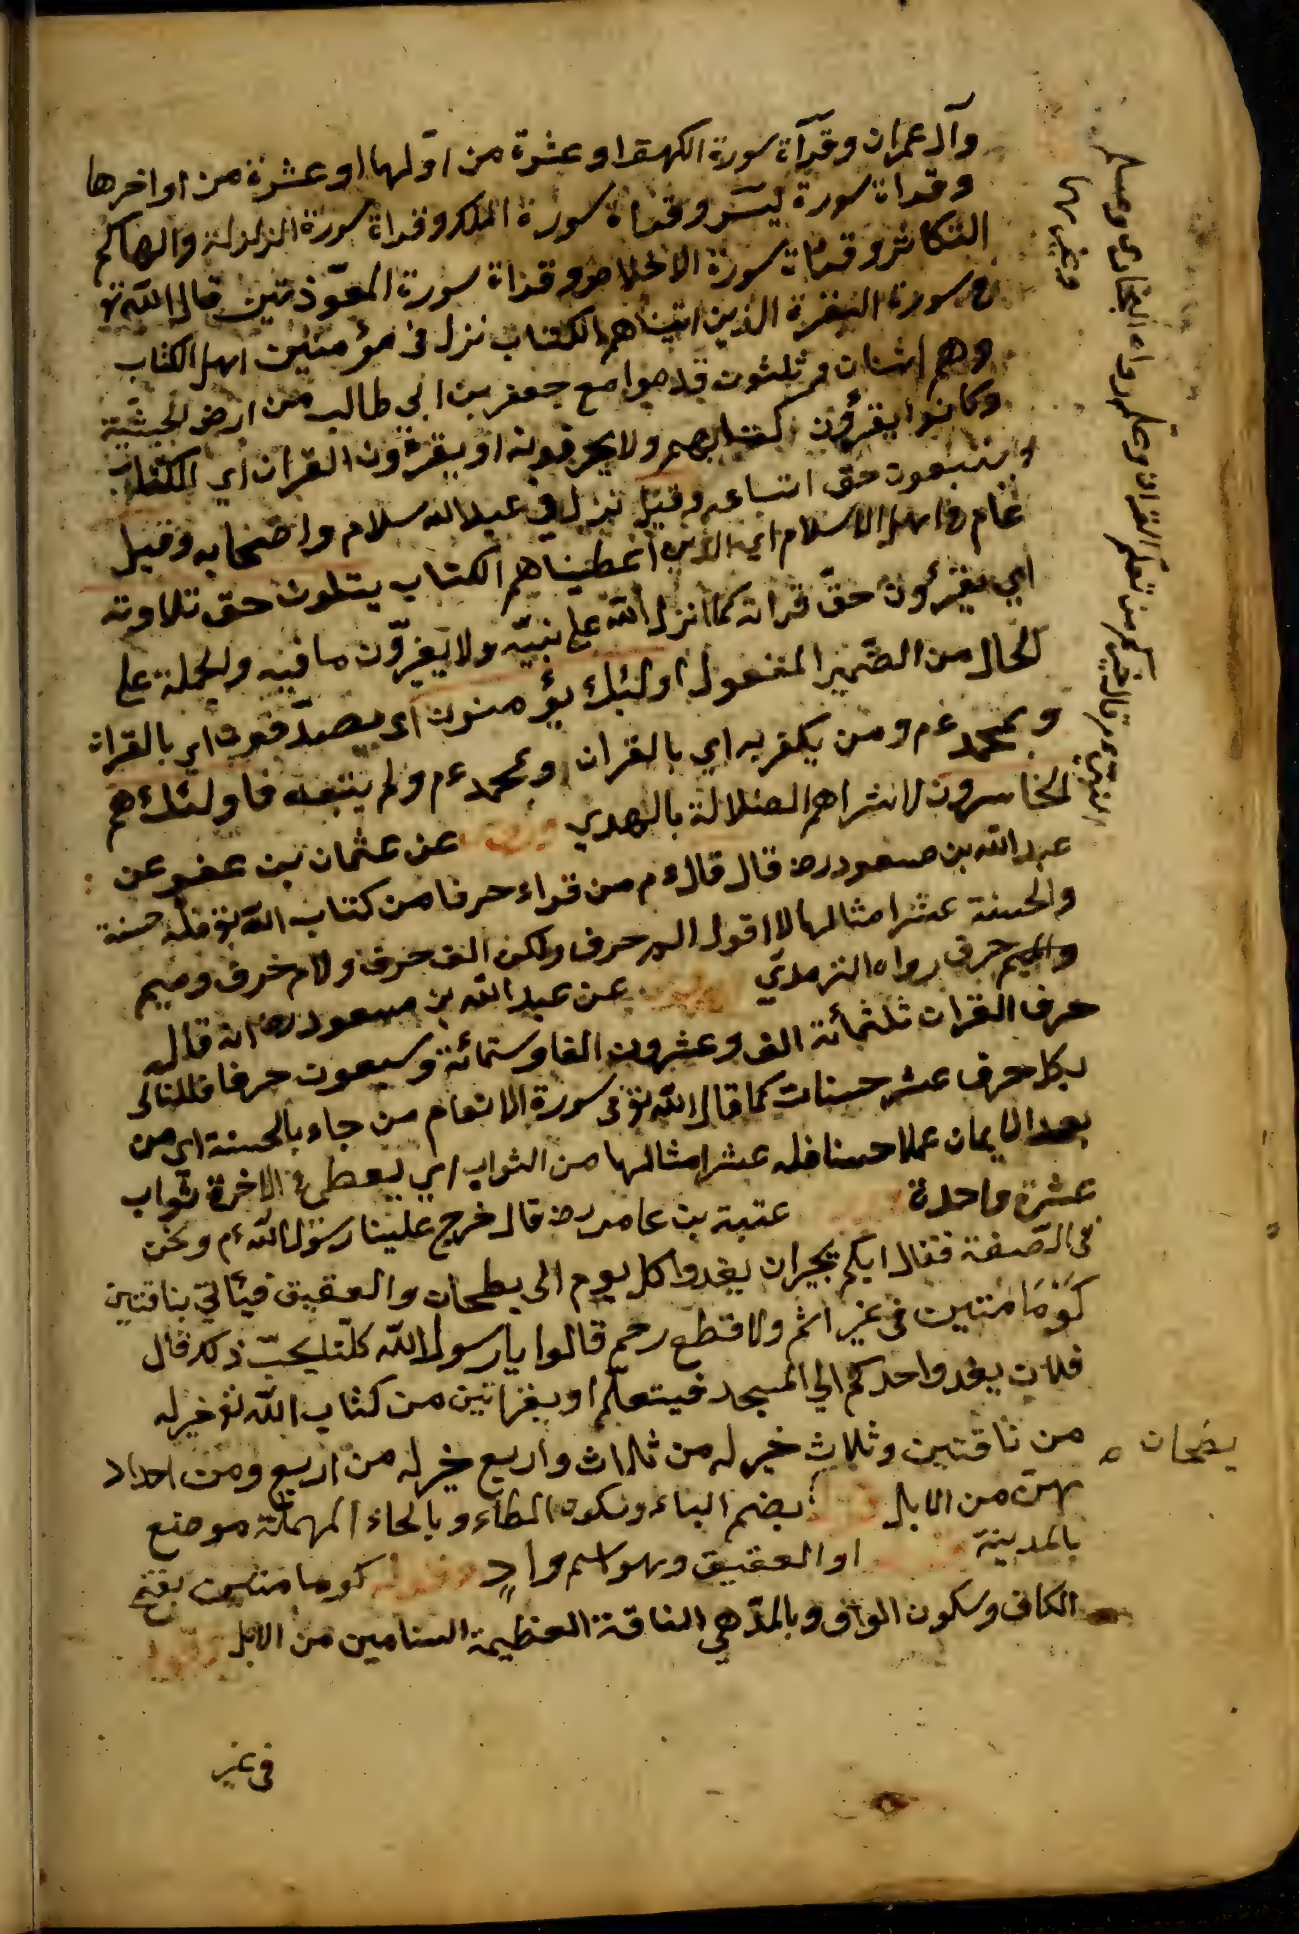 وآل عمران وقرآة سورة الكهف او عشرة من اوّلها او عشرة من اواخرها
وقراة سورة يٓس وقراة سورة الملك وقراة سورة الزلزلة والهاكم
التكاثر وقراة سورة الاخلاص وقراة سورة المعوّذتين قال اللّه تع
في سورة البقرة الذين اتيناهم الكتاب نزل في مؤمنين اهل الكتاب
وهم اثنان وثلثون قدموا مع جعفر بن ابي طالب من ارض الحبشية
وكانوا يقرؤن كتابهم ولا يحرفونه او يقرؤن القران اي الكتاب
ويتبعون حق اتباعه وقيل نزل في عبد الله سلام واصحابه وقيل
عام في اهل الاسلام اي الذين اعطيناهم الكتاب يتلون حق تلاوته
اي يقرؤن حقّ قراته كما انزل اللّه على نبيّه ولا يغيرّون ما فيه والجملة على
الحال من الضّمير المفعول اولئك يؤمنون اى يصدّقون اي بالقران
وبمحمد عم ومن يكفر به اي بالقران وبمحمد عم ولم يتبعه فاولئك هم
الخاسرون لاشتراهم الضلالة بالهدي عن عثمان بن عفو عن
عبد اللّه بن مسعود رض قال قال عم من قراء حرفا من كتاب اللّه تع فله حسنة
والحسنة عشر امثالها لا اقول الم حرف ولكن الف حرف ولام حرف وميم
والميم حرف رواه الترمذي عن عبد اللّه بن مسعود رض انه قال
حرف القران ثلثمائة الف وعشرون الفا وستمائة وسبعون حرفا فللتالى
بكل حرف عشر حسنات كما قال اللّه تع في سورة الانعام من جاء بالحسنة اى من
بعد الايمان عملا حسنا فله عشر امثالها من الثواب اي يعطى في الاخرة ثواب
عشرة واحدة عتبة بن عامر رض قال خرج علينا رسول اللّه عم ونحن
فى الصّفة فقال ايكم يحب ان يغدوا كل يوم الى بطحان والعقيق فيأتي بناقتين
كَوْمَامَتَين فى غير اثم ولا قطع رحم قالوا يا رسول اللّه كلّنا يحبّ ذلك قال
فلان يغدوا احدكم الي المسجد فيتعلّم او يقرا تين من كتاب اللّه تع خير له
من ناقتين وثلاث خير له من ثلاث واربع خير له من اربع ومن اعداد
بهنّ من الابل بضم الباء وسكون الطاء وبالحاء المهملة موضع
بالمدينة او العقيق وهو اسم وادٍ كوما متين بفتح
الكاف وسكون الواو وبالمدّ هي الناقة العظيمة السنامين من الابل
فى غير
بضحان
النبي عم قال خيركم من تعلم القران وعلمه رواه البخارى ومسلم
وغيرها